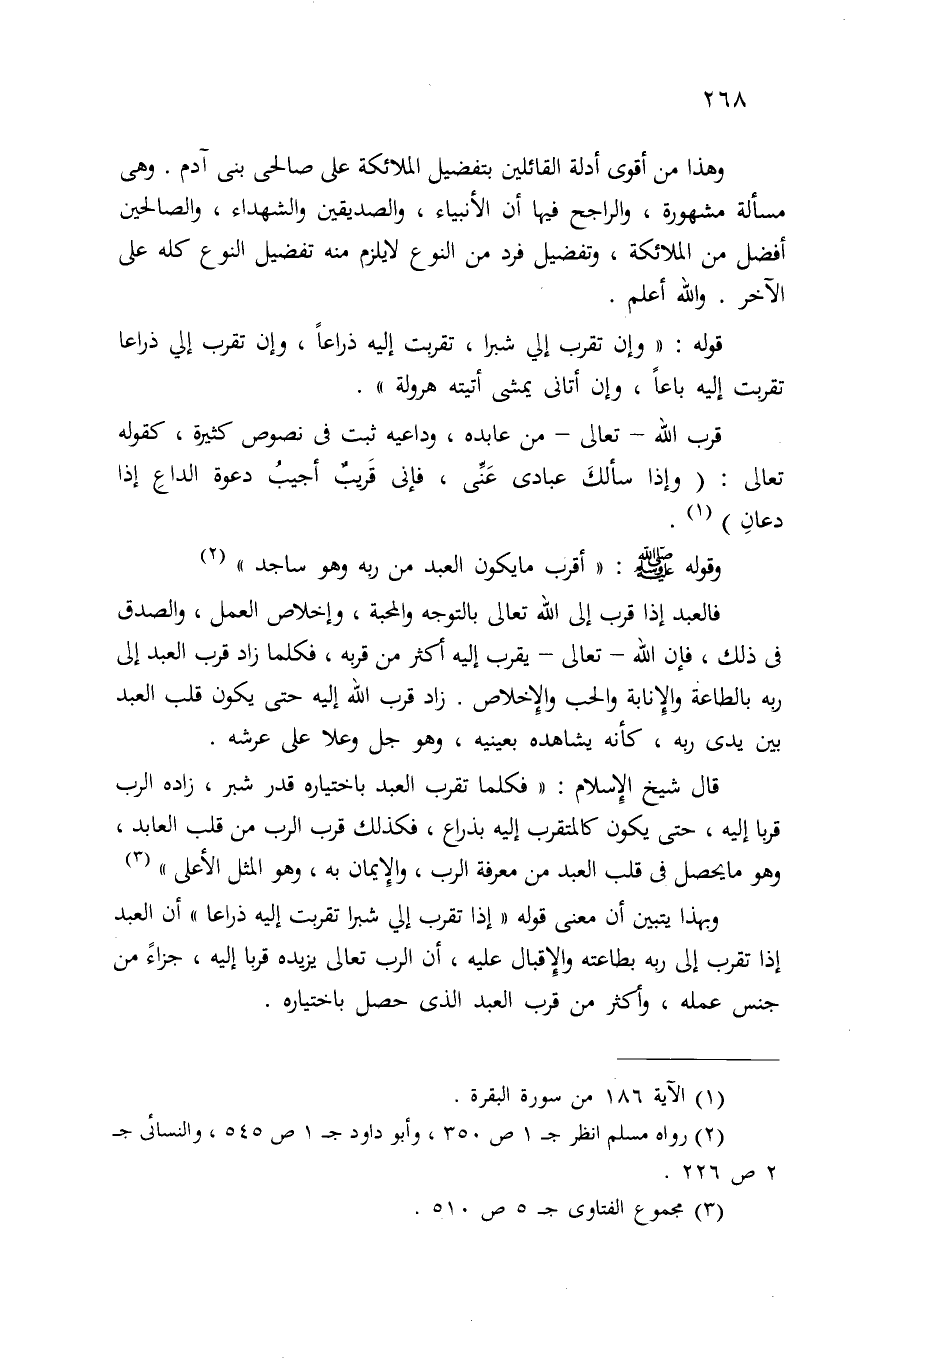 ٢٦٨
وهذا من أقوى أدلة القائلين بتفضيل الملائكة على صالحى بنى آدم . وهى
مسألة مشهورة ، والراجح فيها أن الأنبياء ، والصديقين والشهداء ، والصالحين
أفضل من الملائكة ، وتفضيل فرد من النوع لايلزم منه تفضيل النوع كله على
الآخر . والله أعلم .
قوله : « وإن تقرب إلي شبرا ، تقربت إليه ذراعاً ، وإن تقرب إلي ذراعا
تقربت إليه باعاً ، وإن أتانى يمشى أتيته هرولة » .
قرب الله – تعالى – من عابده ، وداعيه ثبت فى نصوص كثيرة ، كقوله
تعالى : ( وإذا سألكَ عبادى عَنِّى ، فإنى قَريبٌ أجيبُ دعوة الداعِ إذا
دعانِ ) (١) .
وقوله ﷺ : « أقرب مايكون العبد من ربه وهو ساجد » (٢)
فالعبد إذا قرب إلى الله تعالى بالتوجه والمحبة ، وإخلاص العمل ، والصدق
فى ذلك ، فإن الله – تعالى – يقرب إليه أكثر من قربه ، فكلما زاد قرب العبد إلى
ربه بالطاعة والإنابة والحب والإخلاص . زاد قرب الله إليه حتى يكون قلب العبد
بين يدى ربه ، كأنه يشاهده بعينيه ، وهو جل وعلا على عرشه .
قال شيخ الإسلام : « فكلما تقرب العبد باختياره قدر شبر ، زاده الرب
قربا إليه ، حتى يكون كالمتقرب إليه بذراع ، فكذلك قرب الرب من قلب العابد ،
وهو مايحصل فى قلب العبد من معرفة الرب ، والإيمان به ، وهو المثل الأعلى » (٣)
وبهذا يتبين أن معنى قوله « إذا تقرب إلي شبرا تقربت إليه ذراعا » أن العبد
إذا تقرب إلى ربه بطاعته والإقبال عليه ، أن الرب تعالى يزيده قربا إليه ، جزاءً من
جنس عمله ، وأكثر من قرب العبد الذى حصل باختياره .
(١) الآية ١٨٦ من سورة البقرة .
(٢) رواه مسلم انظر جـ ١ ص ٣٥٠ ، وأبو داود جـ ١ ص ٥٤٥ ، والنسائى جـ
٢ ص ٢٢٦ .
(٣) مجموع الفتاوى جـ ٥ ص ٥١٠ .